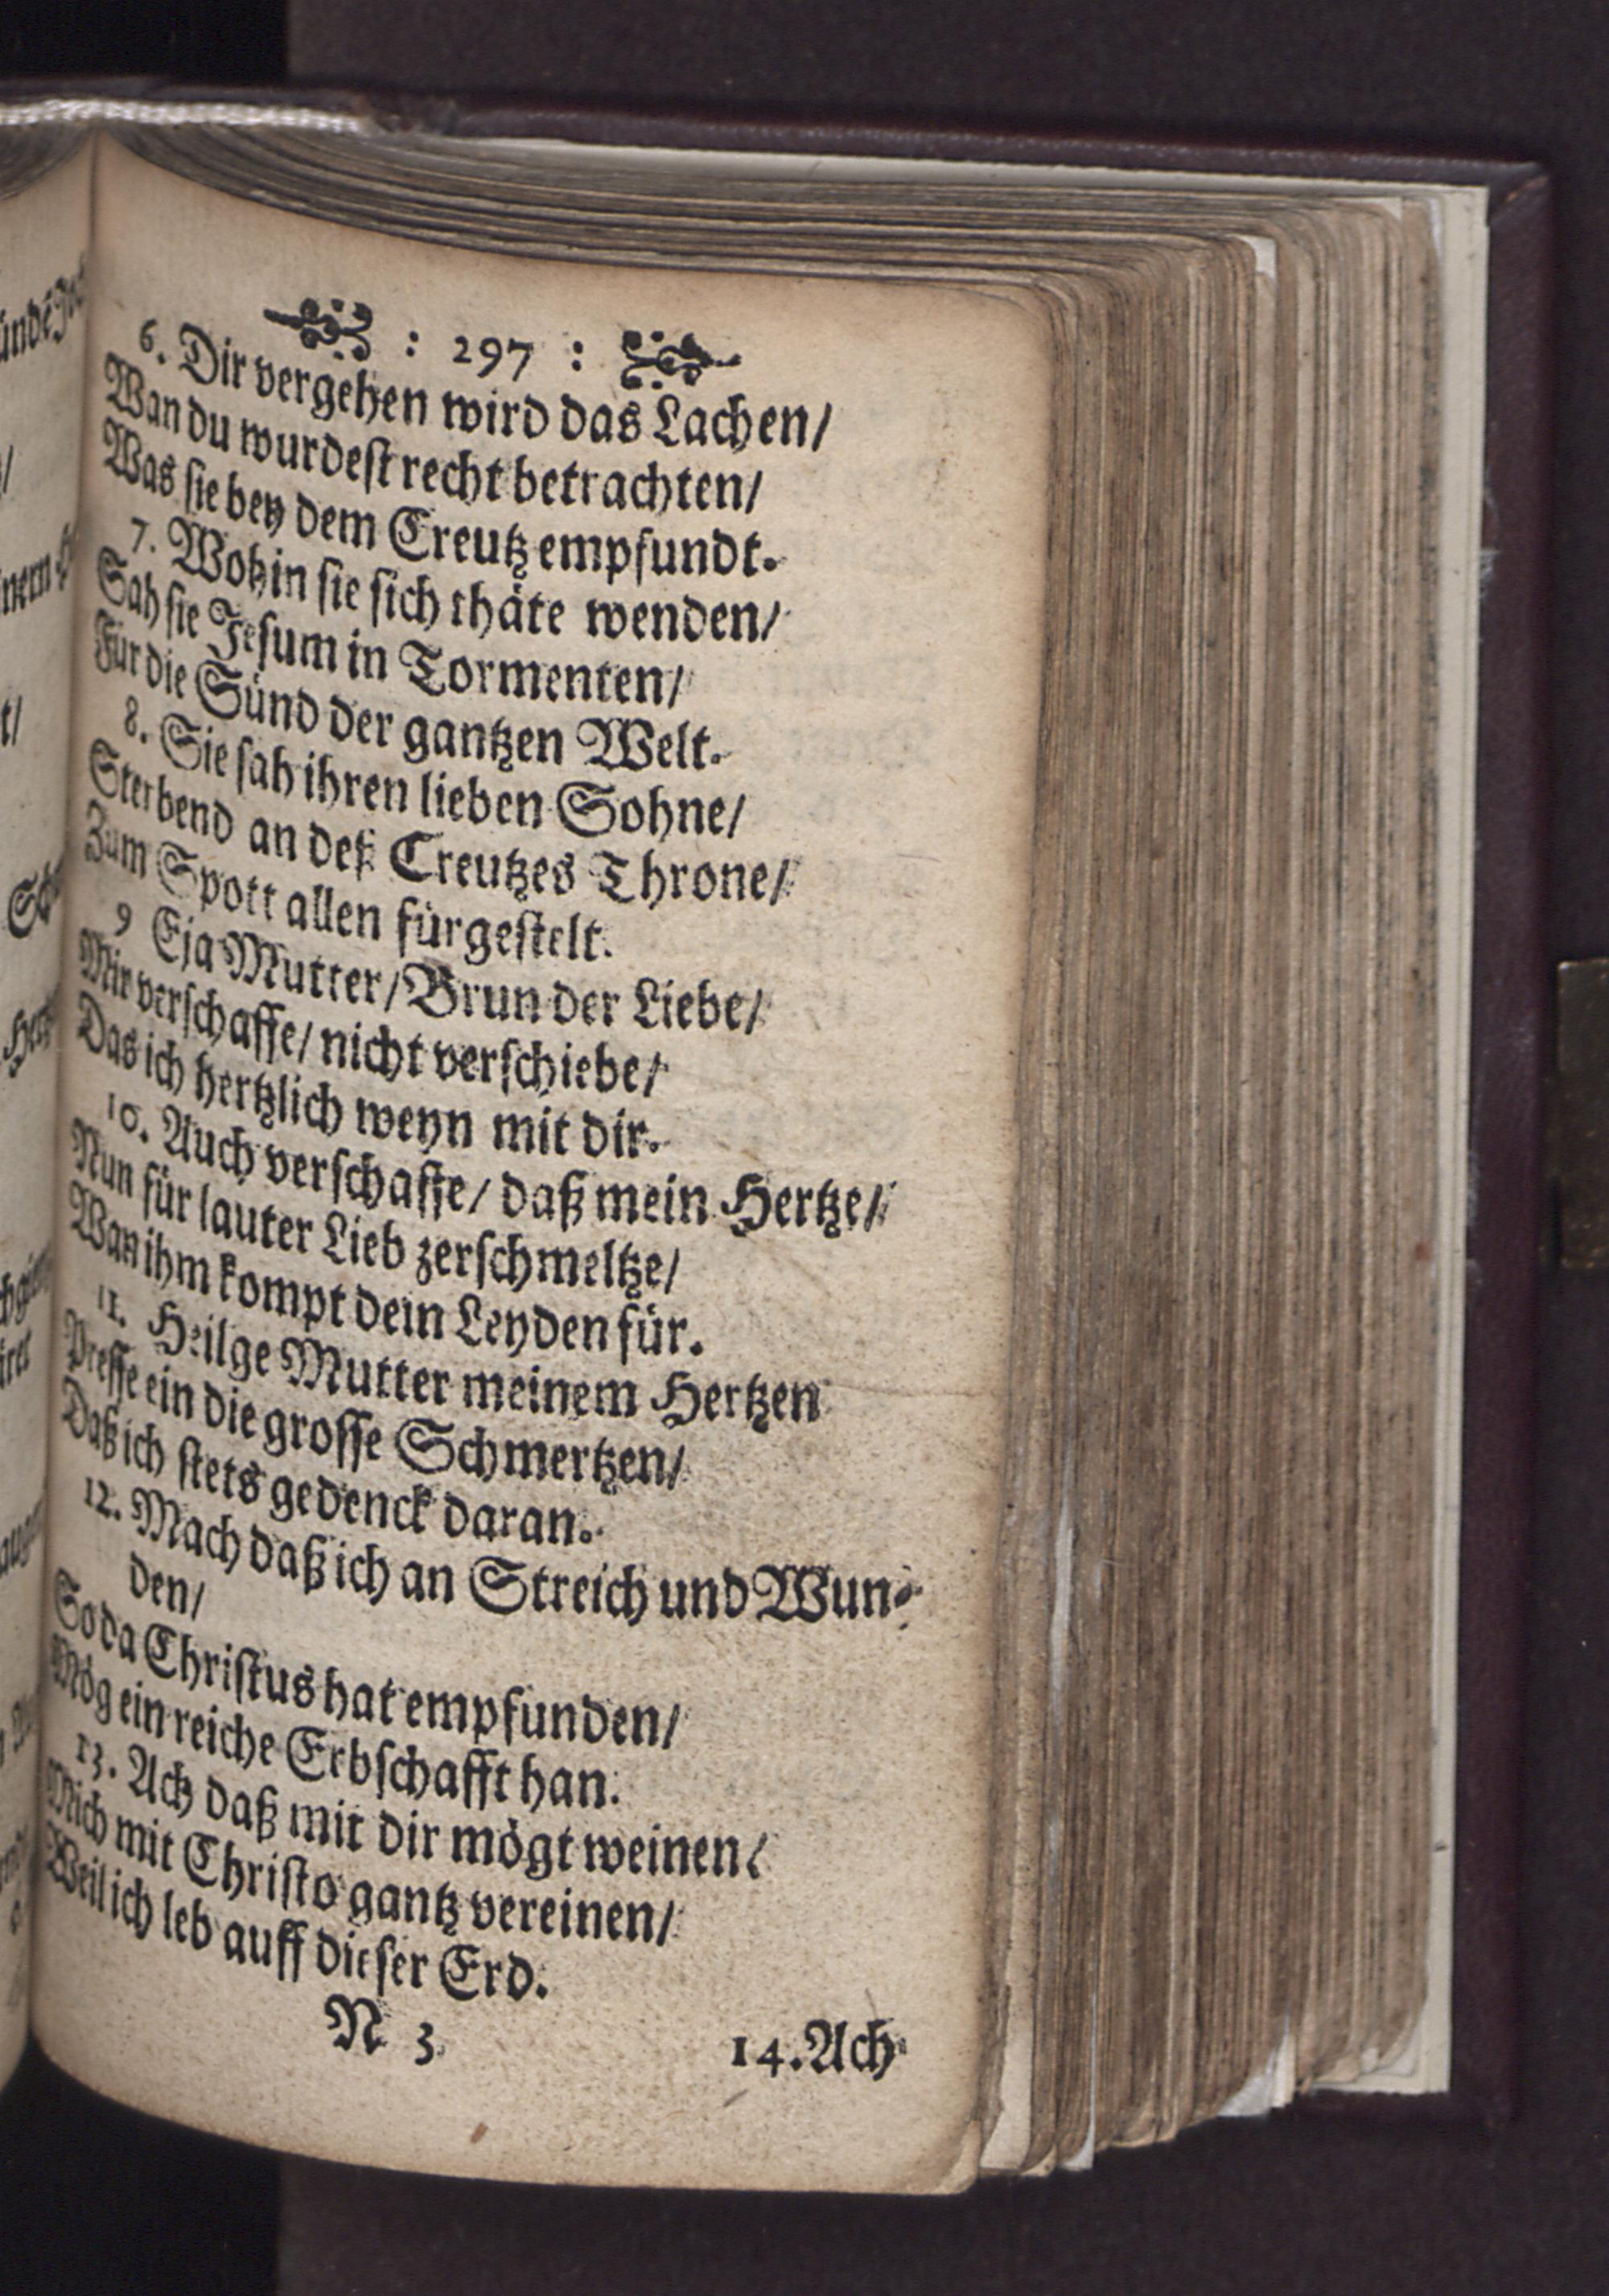 : 297 :
6. Dir vergehen wird das Lachen/
Wan du wurdest recht betrachten/
Was sie bey dem Creutz empfundt.
7. Wohin sie sich thäte wenden/
Sah sie Jesum in Tormenten/
Für die Sünd der gantzen Welt.
8. Sie sah ihren lieben Sohne/
Sterbend an deß Creutzes Throne/
Zum Spott allen fürgestelt.
9 Eja Mutter/ Brun der Liebe/
Mir verschaffe/ nicht verschiebe/
Das ich hertzlich weyn mit dir.
10. Auch verschaffe/ daß mein Hertze/
Nun für lauter Lieb zerschmeltze/
Wan ihm kompt dein Leyden für.
11. Heilge Mutter meinem Hertzen
Presse ein die grosse Schmertzen/
Daß ich stets gedenck daran.
12. Mach daß ich an Streich und Wun-
den/
So da Christus hat empfunden/
Mög ein reiche Erbschafft han.
13. Ach daß mit dir mögt weinen/
Mich mit Christo gantz vereinen/
Weil ich leb auff dieser Erd.
N 3
14. Ach